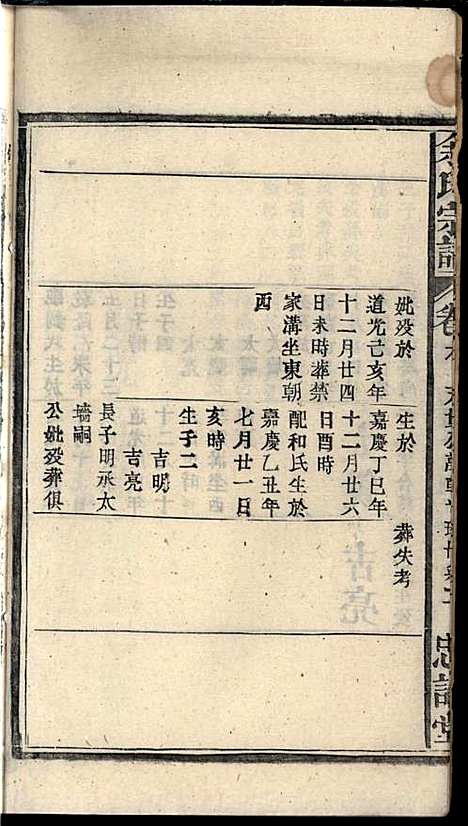 余氏宗譜
卷
忠
堂
妣歿於
道光己亥年
十二月廿四
日未時葬禁
家溝坐東朝
西
生於
嘉慶丁巳年
十二月廿六
日酉時
配和氏生於
嘉慶乙丑年
七月廿一日
亥時
生子二
吉明
吉亮
長子明承太
嗣
公妣歿葬俱
葬失考